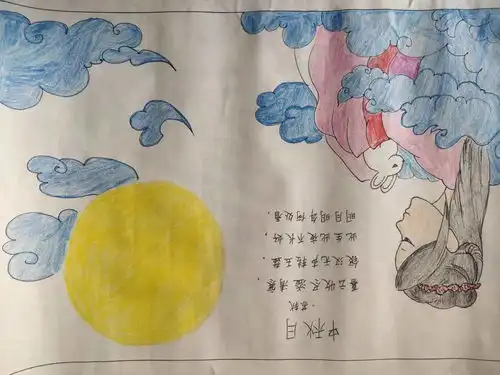 中秋月
·苏轼
暮云收尽溢清寒，
银汉无声转玉盘。
此生此夜不长好，
明月明年何处看。